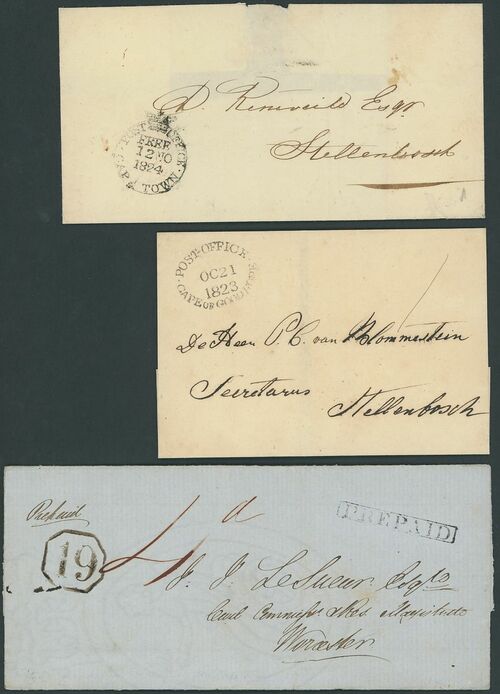 POST OFFICE
FREE
12 NO
1824
CAPE TOWN
Esqr
Stellenbosch
POST-OFFICE
OC 21
1823
CAPE OF GOOD HOPE
De Heer P. C. van Blommestein
Secretarus
Stellenbosch
Prepaid
4 d
PREPAID
19
J. J. LeSueur Esqre
Civil Commissr & Res Magistrate
Worcester